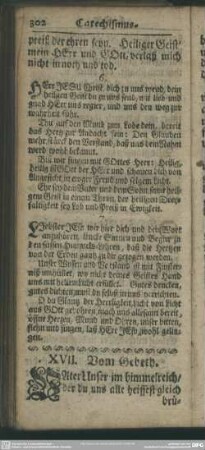 302 Catechismus-
preiß der ehren seyn. Heiliger Geist
mein HErr und GOtt, verlaß mich
nicht in noth und tod.
6.
HErr JESu Christ dich zu uns wend, dein
heilgen Geist du zu uns send, mit lieb und
gnad HErr uns regier, und uns den weg zur
wahrheit führ.
Thu auf den Mund zum Lobe dein, bereit
das Hertz zur Andacht fein: Den Glauben
mehr, stärck den Verstand, daß uns dein Nahm
werd wohl bekannt.
Biß wir singen mit GOttes Heer: Heilig,
heilig ist GOtt der HErr und schauen dich von
Angesicht in ewger Freud und selgem Licht.
Ehr sey dem Vater und dem Sohn samt heilgem
Geist in einem Thron, der heiligen Dreyfaltigkeit
sey Lob und Preiß in Ewigkeit.
7.
Liebster JEsu wir sind hier dich und dein Wort
anzuhören, lencke Sinnen und Begier
auf die süssen Himmels-Lehren, daß die Hertzen
von der Erden gantz zu dir gezogen werden.
Unser Wissen und Verstand ist mit Finsterniß
umhüllet, wo nicht deines Geistes Hand
uns mit hellem Licht erfüllet. Gutes dencken,
gutes dichten must du selbst in uns verrichten.
O du Glantz der Herrlichkeit, licht vom licht aus
GOtt gebohren, mach uns allesamt bereit,
öffne Hertzen, Mund und Ohren, unser bitten,
flehn und singen, laß HErr JEsu wohl gelingen.
XVII. Vom Gebeth.
VAter Unser im himmelreich/
der du uns alle heissest gleich
brü-